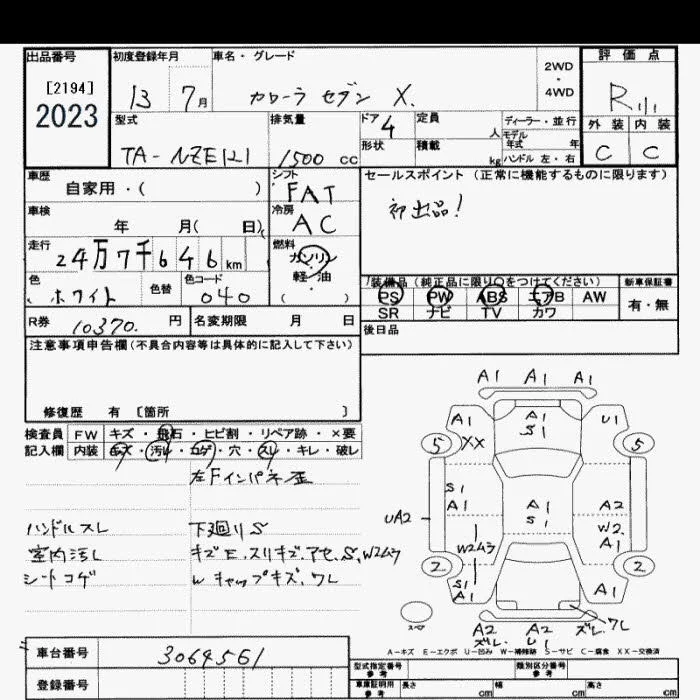 出品番号
[2194]
2023
初度登録年月
13 7月
車名・グレード
カローラ セダン X.
2WD
・
4WD
評価点
外装 内装
C C
型式
TA-NZE121
排気量
1500 cc
ドア 4
形状
定員
人
積載
kg
ディーラー・並行
モデル
年式 年
ハンドル 左・右
車歴
自家用・( )
シフト
FAT
冷房
AC
車検
年 月( 日)
走行
24万7千646km
燃料
ガソリン
軽・油
( )
色
ホワイト
色替
色コード
040
セールスポイント(正常に機能するものに限ります)
初出品!
装備品(純正品に限り○をつけてください)
PS PW ABS エアB AW
SR ナビ TV カワ
新車保証書
有・無
R券 10370. 円
名変期限 月 日
後日品
注意事項申告欄(不具合内容等は具体的に記入して下さい)
修復歴 有 [箇所 ]
検査員
記入欄
FW キズ・飛石・ヒビ割・リペア跡・×要
内装 キズ・汚レ・コゲ・穴・スレ・キレ・破レ
左Fインパネ歪
ハンドルスレ
室内汚レ
シートコゲ
下廻りS
キズE.スリキズ.アセ.S,W2ムラ
W キャップキズ.ワレ
A1 A1 A1
A1 A1 U1
S1
5 XX 5
S1
A1 A1 A2
S1
UA2 W2
A1
W2ムラ
2 2
S1
A1 A1
スペア
A2 A2 ズレ ワレ
ズレ U1
A-キズ E-エクボ U-凹み W-補修跡 S-サビ C-腐食 XX-交換済
車台番号 3064561
登録番号
型式指定番号
参考
類別区分番号
参考
車庫証明用
参考
長さ cm
幅 cm
高さ cm